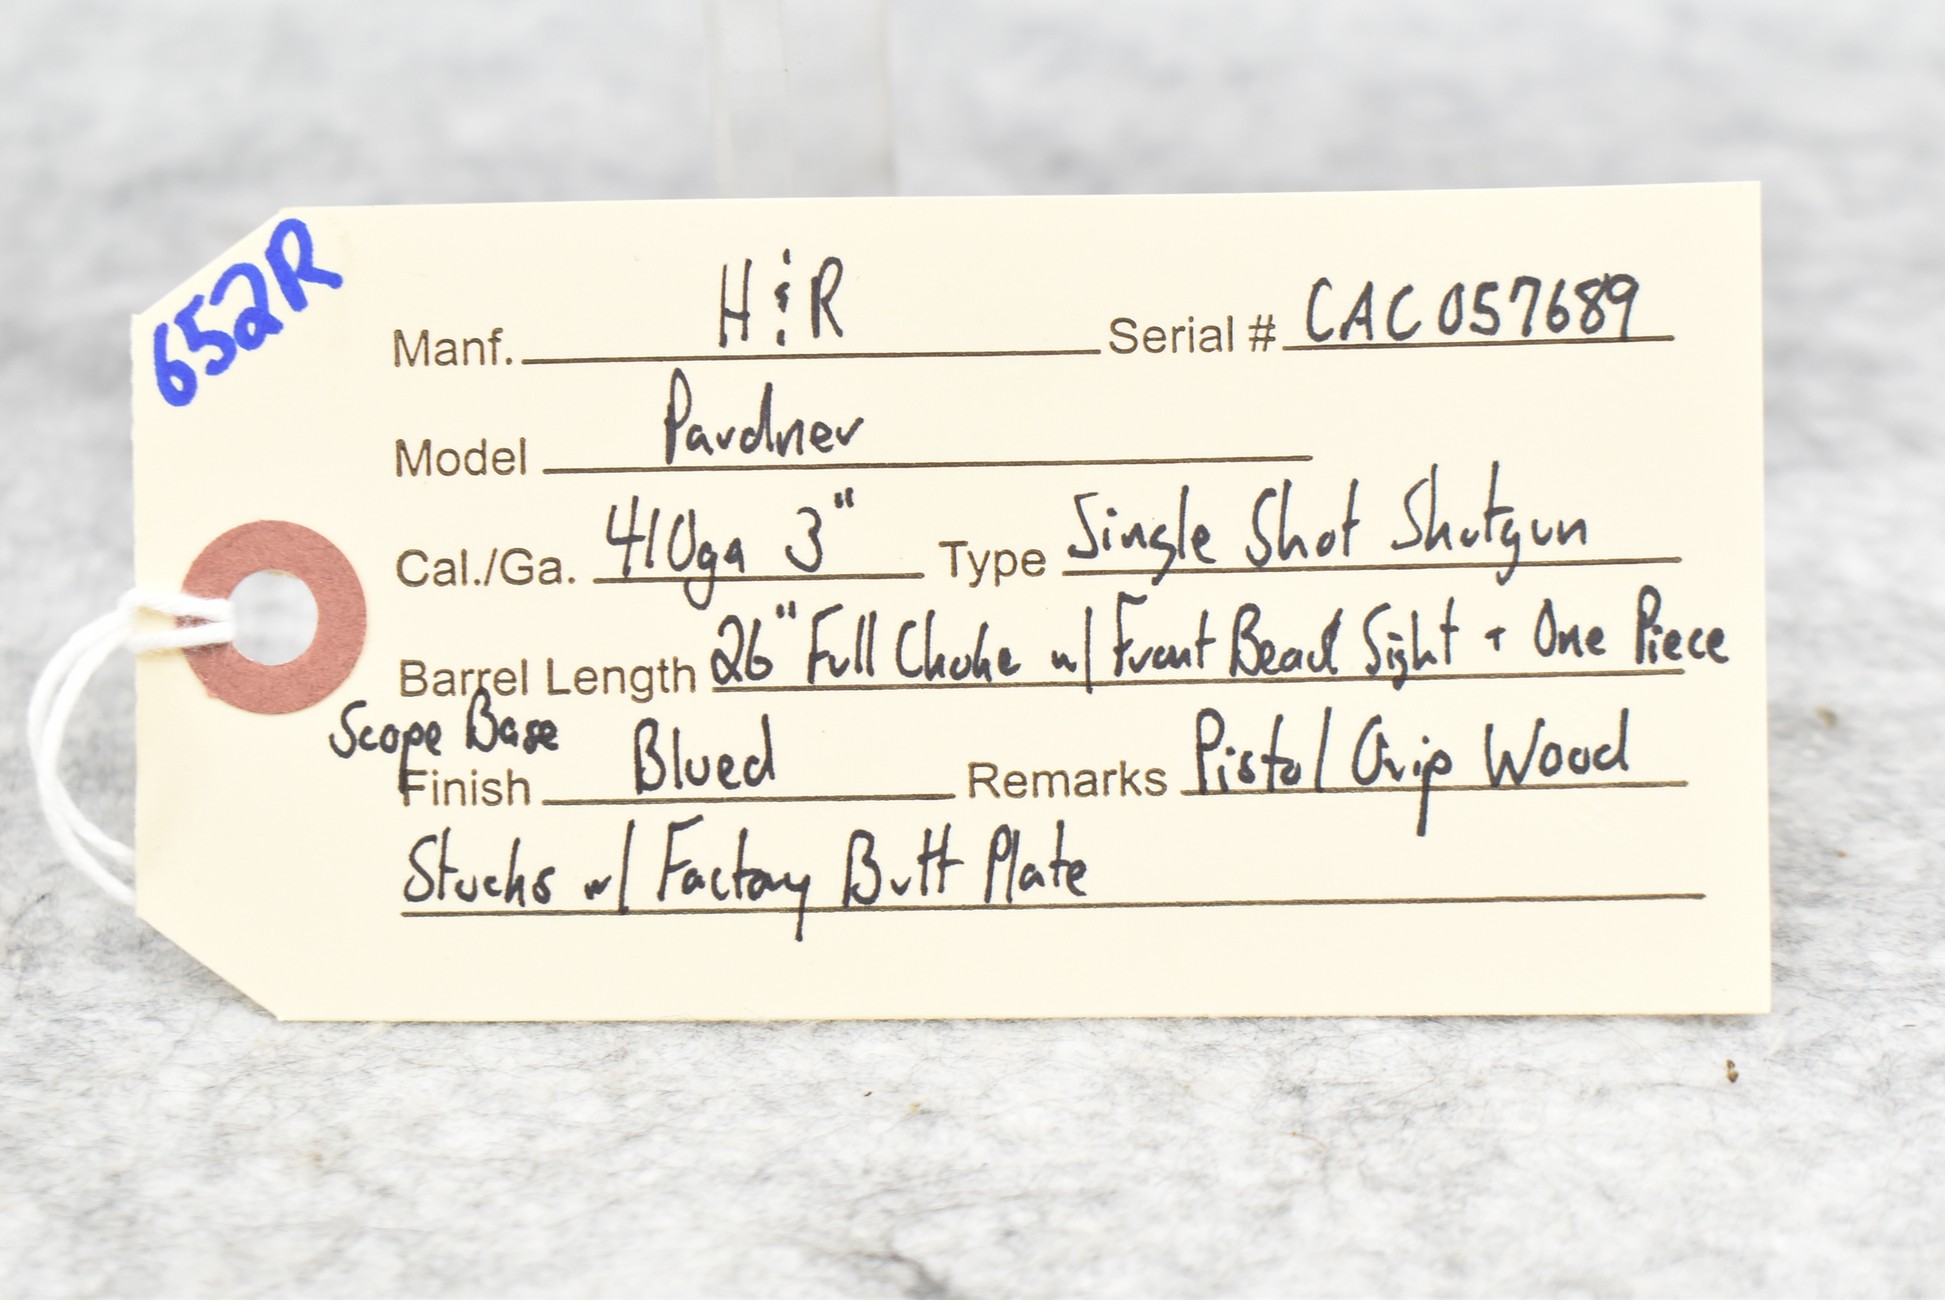 652R
Manf. H&R Serial # CAC057689
Model Pardner
Cal./Ga. 410ga 3" Type Single Shot Shotgun
Barrel Length 26" Full Choke w/ Front Bead Sight + One Piece
Scope Base
Finish Blued Remarks Pistol Grip Wood
Stocks w/ Factory Butt Plate